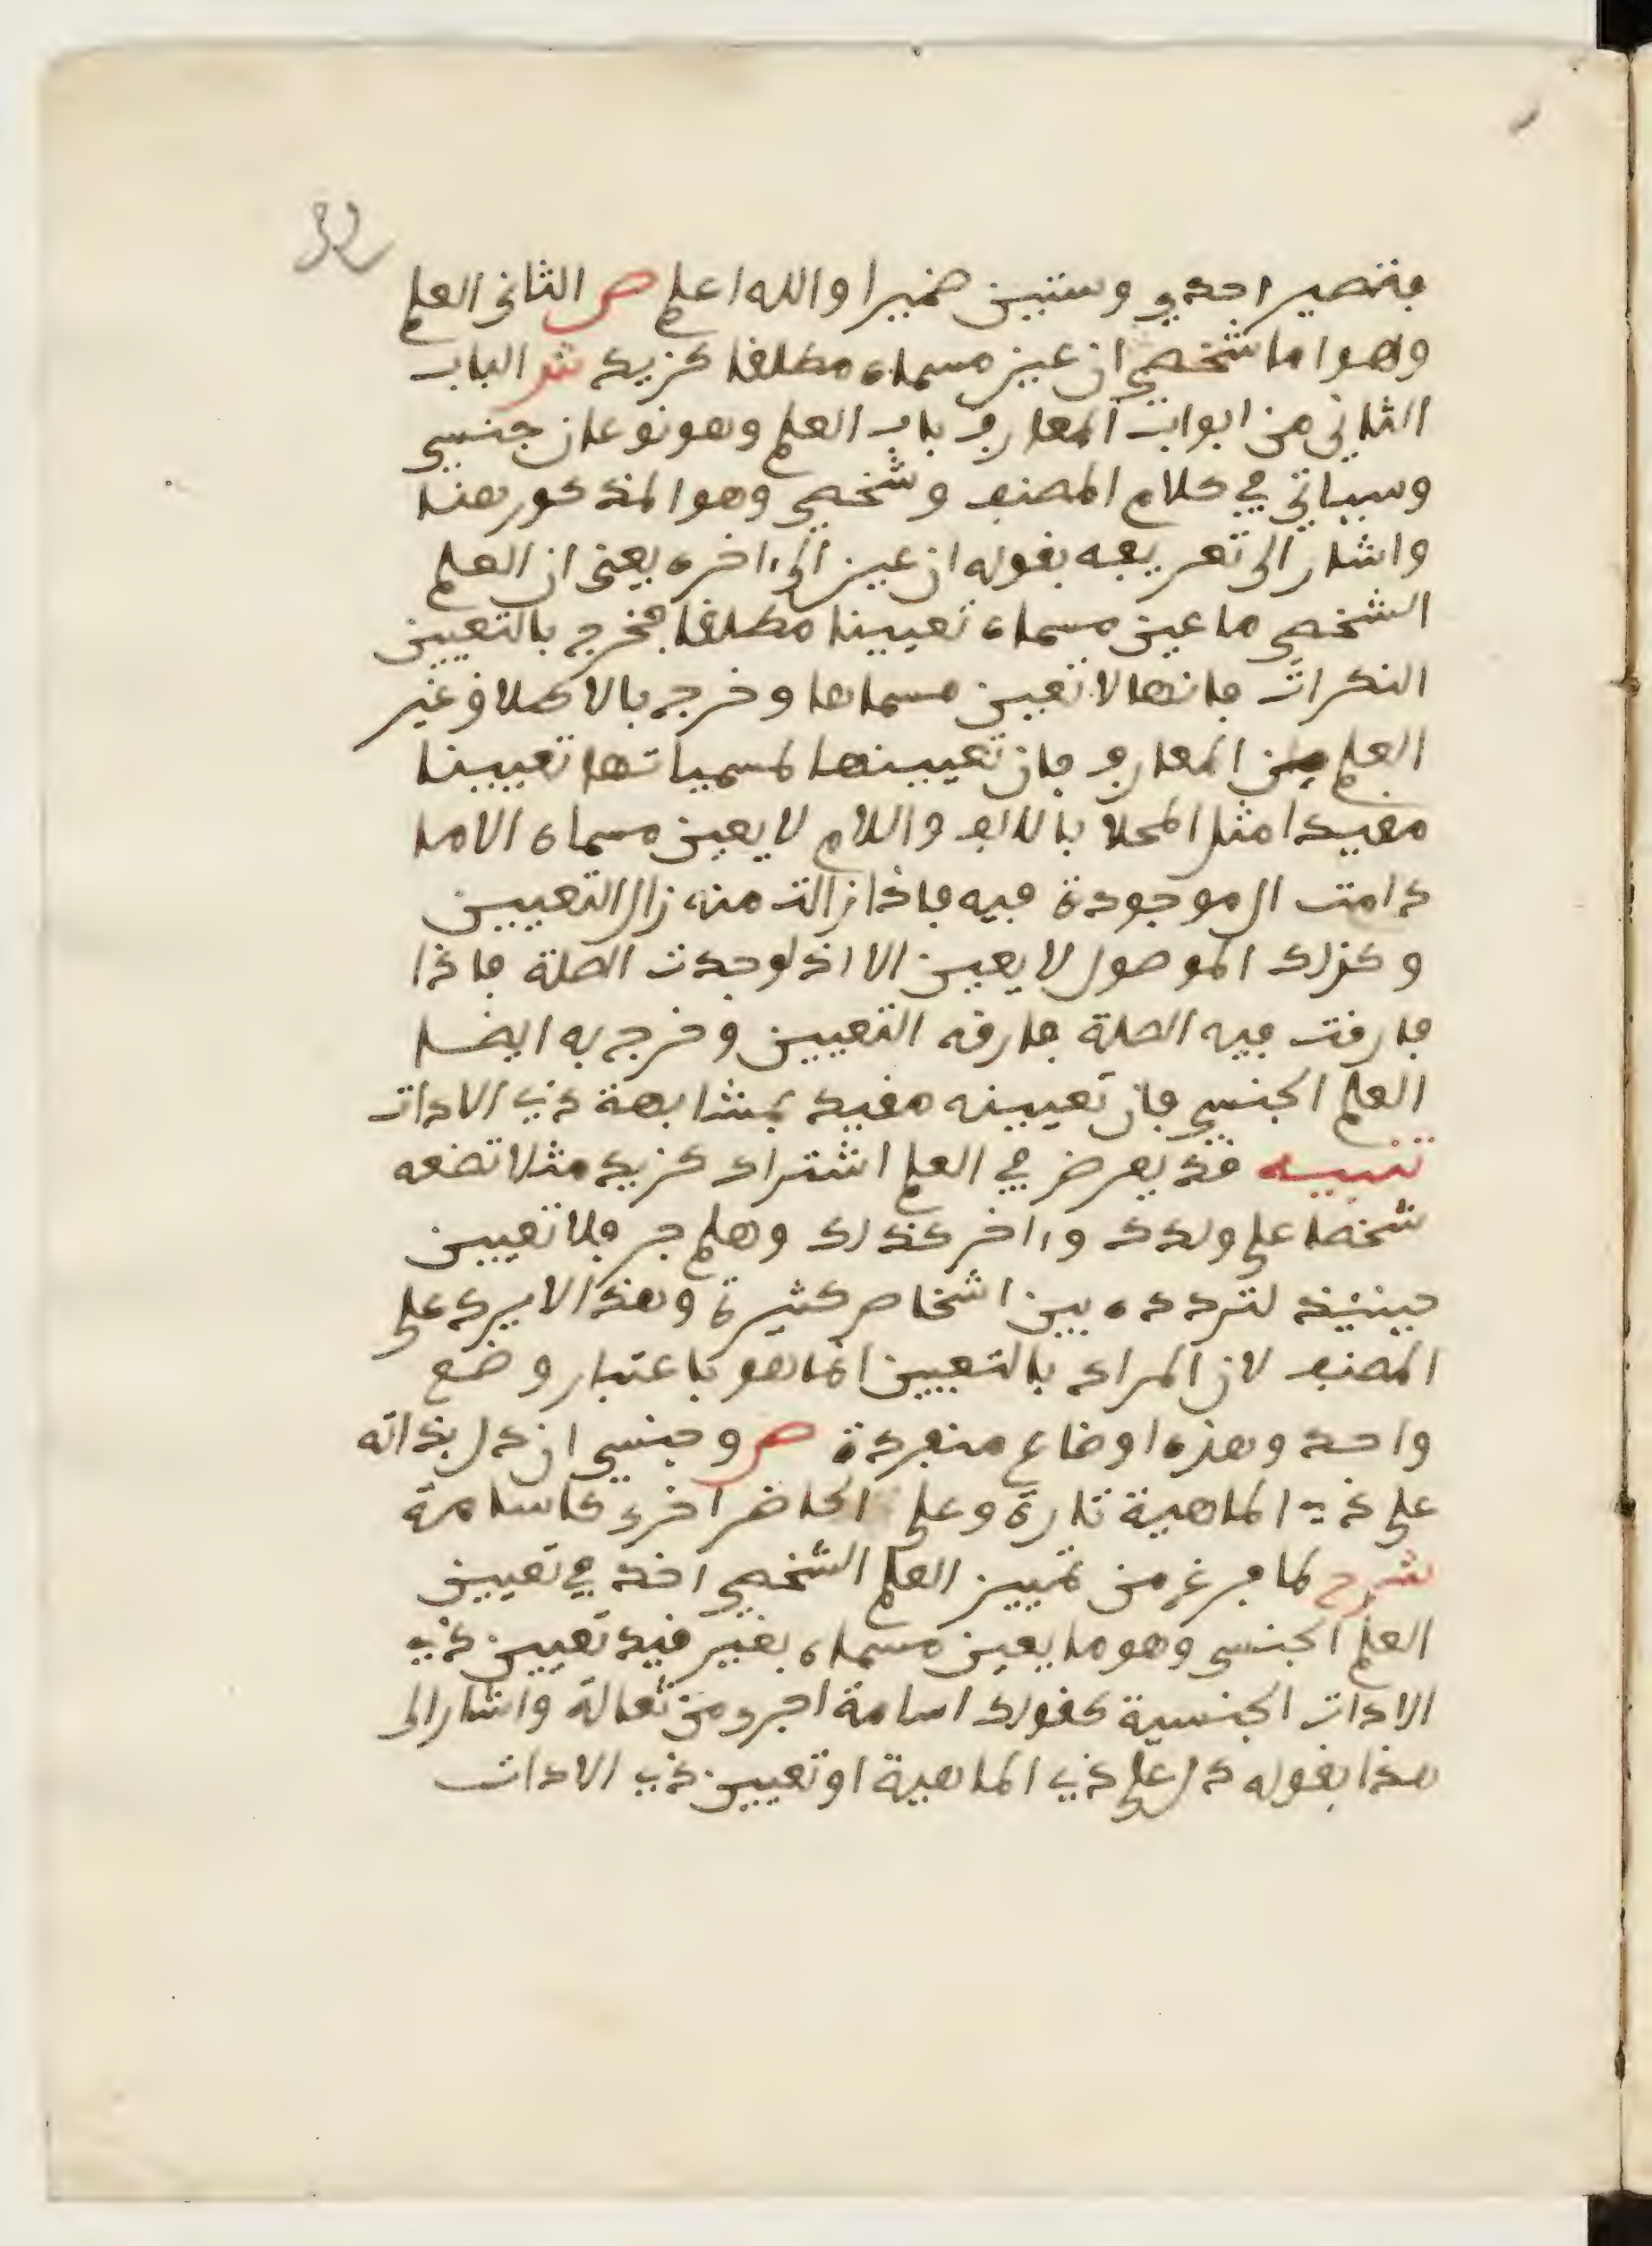 فتصير احدى وستين ضميرا والله اعلم ص الثاني العلم
وهو اما شخصي ان عين مسماه مطلقا كزيد ش الباب
الثاني من ابواب المعارف باب العلم وهو نوعان جنسي
وسياتي في كلام المصنف وشخصي وهو المذكور هنا
واشار الى تعريفه بقوله ان عين الى ءاخره يعني ان العلم
الشخصي ما عين مسماه تعيينا مطلقا فخرج بالتعيين
النكرات فانها لا تعين مسماها وخرج بالاطلاق غير
العلم من المعارف فان تعيينها لمسمياتها تعيينا
مقيدا مثل المحلا بالالف واللام لا يعين مسماه الا ما
دامت ال موجودة فيه فاذا زالت منه زال التعيين
وكذلك الموصول لا يعين الا اذ لوجدت الصلة فاذا
فارقت فيه الصلة فارقه التعيين وخرج به ايضا
العلم الجنسي فان تعيينه مقيد بمشابهة ذي الادات
تنبيه قد يعرض في العلم اشتراك كزيد مثلا تضعه
شخصا على ولدك وءاخر كذلك وهلم جر فلا تعيين
حينئذ لتردده بين اشخاص كثيرة وهذا لا يرد على
المصنف لان المراد بالتعيين انما هو باعتبار وضع
واحد وهذه اوضاع منفردة ص وجنسي ان دل بذاته
على ذي الماهية تارة وعلى الحاضر اخرى كاسامة
شرح لما فرغ من تمييز العلم الشخصي اخذ في تعيين
العلم الجنسي وهو ما يعين مسماه بغير قيد تعيين ذي
الادات الجنسية كقولك اسامة اجرى من ثعالة واشار الى
هذا بقوله دل على ذي الماهية او تعيين ذي الادات